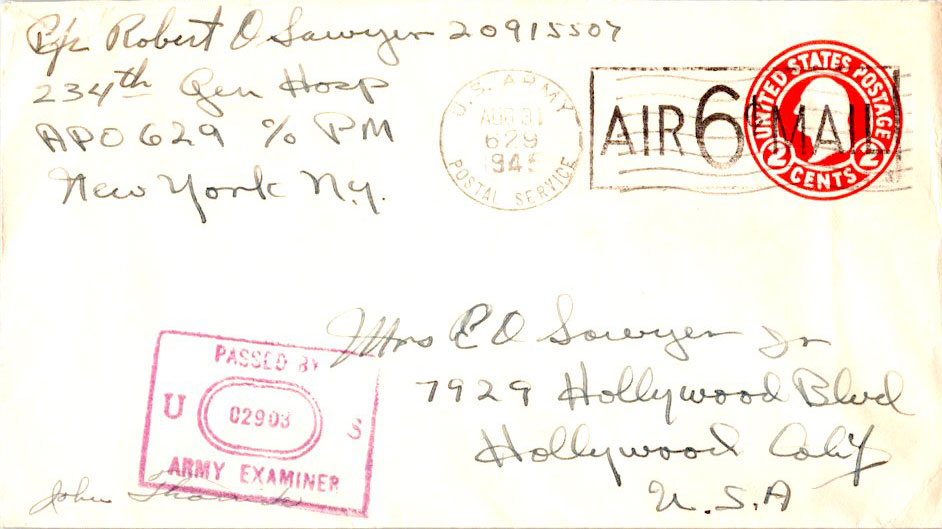 Pfc Robert O Sawyer 20915507
234th Gen Hosp
APO 629 c/o PM
New York N.y.
U.S. ARMY
AUG 31
629
1945
POSTAL SERVICE
AIR 6¢ MAIL
UNITED STATES POSTAGE
2 CENTS 2
Mrs R O Sawyer Jr
7929 Hollywood Blvd
Hollywood Calif
U.S.A
PASSED BY
U 02903 S
ARMY EXAMINER
John